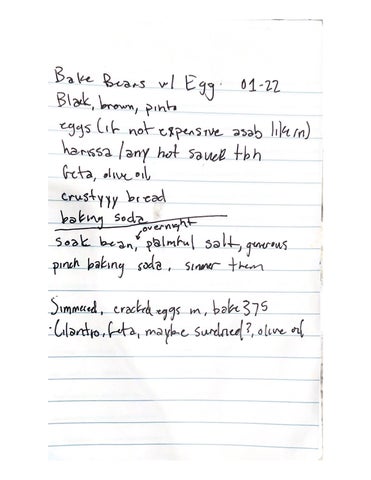 Bake Beans w/ Egg. 01-22
Black, brown, pinto
eggs (if not expensive asab lik rn)
harissa/any hot sauce tbh
feta, olive oil
crustyyy bread
baking soda
overnight
soak bean, palmful salt, generous
pinch baking soda, simmer them
Simmered, cracked eggs in, bake 375
·Cilantro, feta, maybe sundried?, olive oil